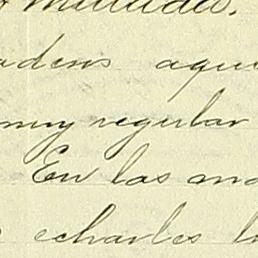 mutuidas.
adens aqui
muy regular
En las ma
echarles l